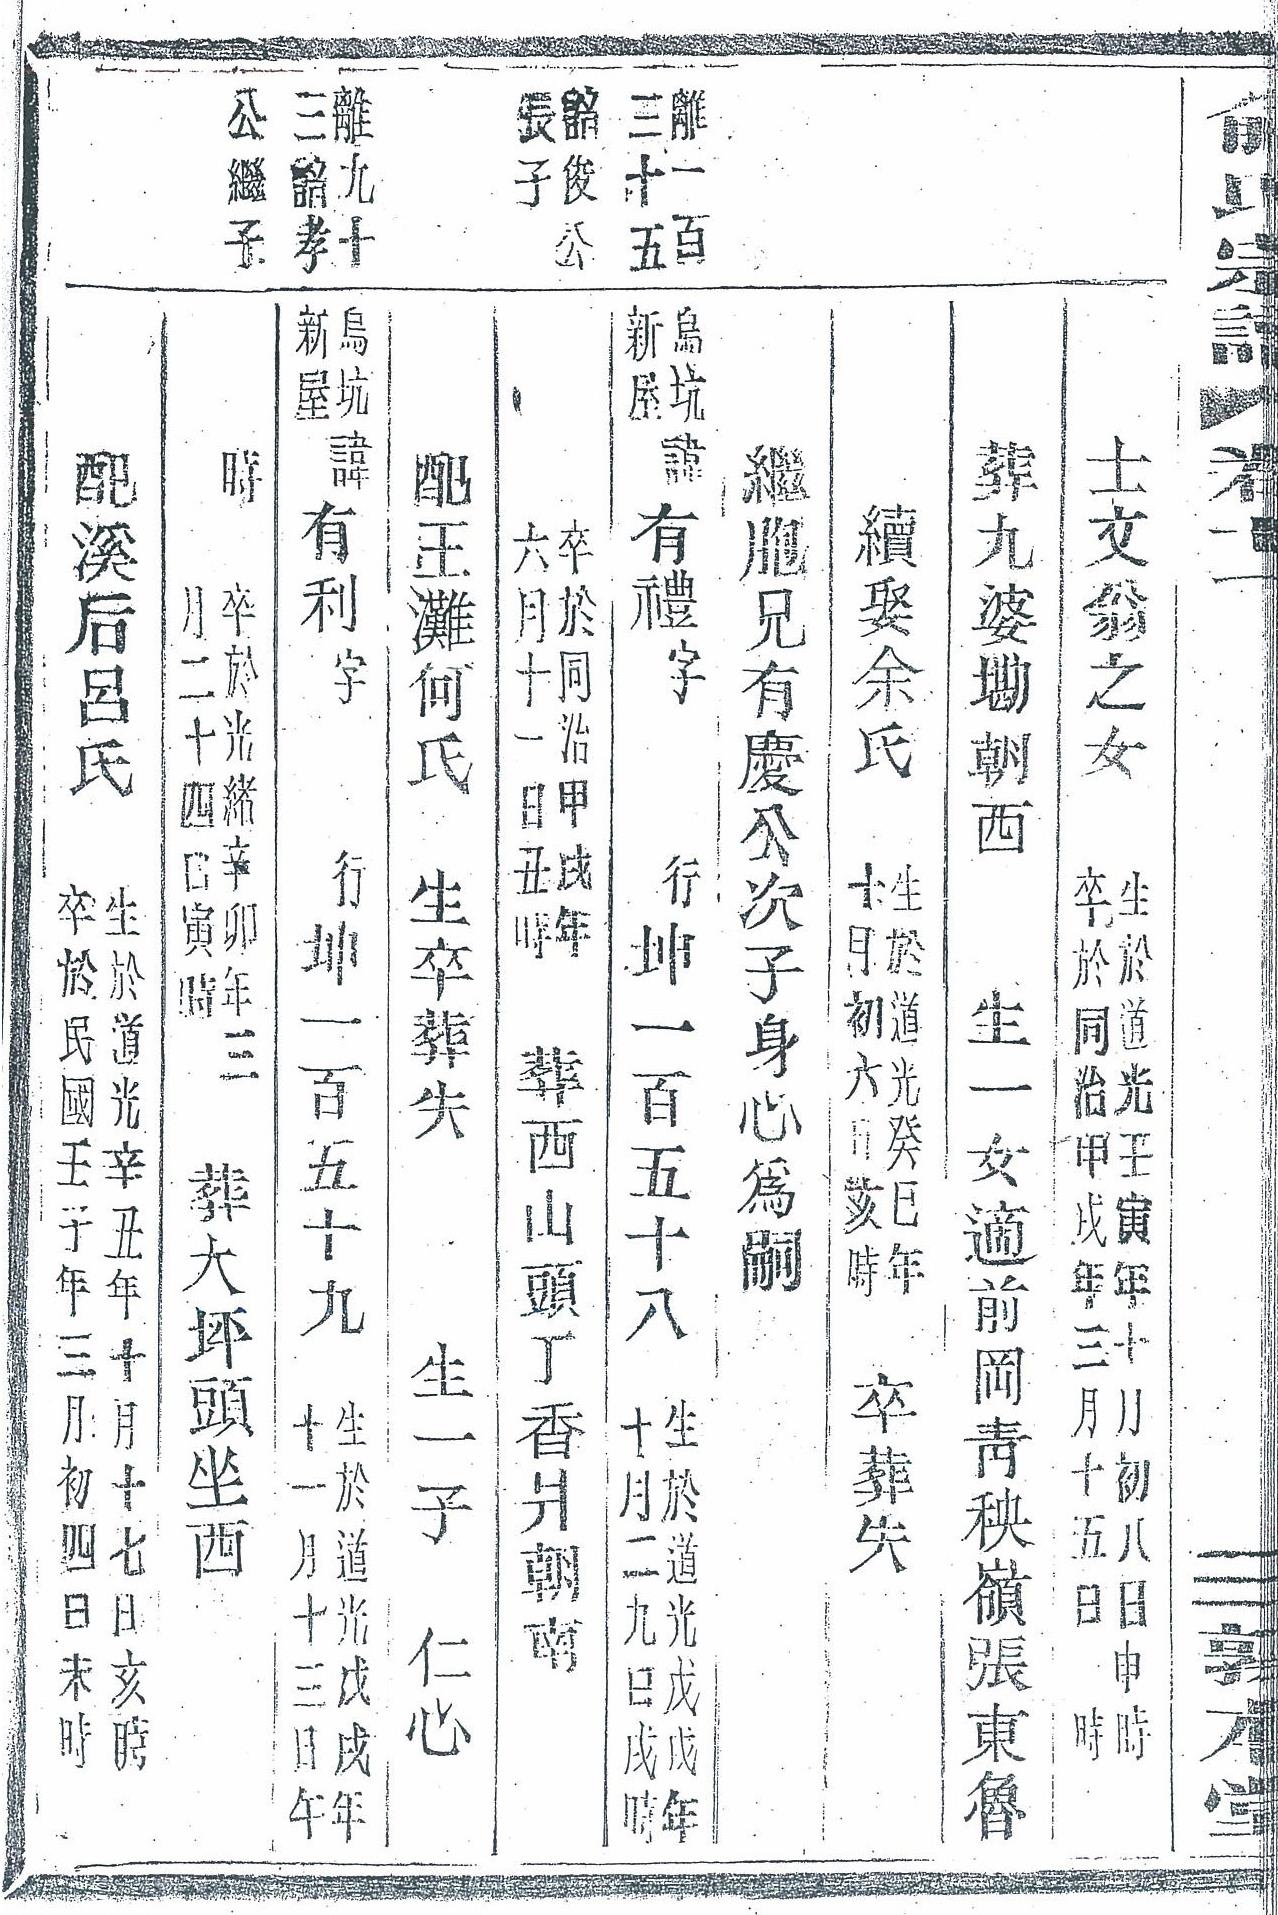 俞氏宗譜
卷十一
三
敦本堂
士文翁之女
生於道光壬寅年十月初八日申時
卒於同治甲戌年三月十五日 時
葬九婆㘭朝西 生一女適前岡青秧嶺張東魯
續娶余氏
生於道光癸巳年
十月初六日亥時
卒葬失
繼胞兄有慶公次子身心爲嗣
離一百
三十五
韶俊公
長子
烏坑
新屋
諱有禮字 行坤一百五十八
生於道光戊戌年
十月二九日戌時
卒於同治甲戌年
六月十一日丑時
葬西山頭丁香爿朝南
配王灘何氏 生卒葬失 生一子 仁心
離九十
三韶孝
公繼子
烏坑
新屋
諱有利字 行坤一百五十九
生於道光戊戌年
十一月十三日午
時
卒於光緒辛卯年三
月二十四日寅時
葬大坪頭坐西
配溪后呂氏
生於道光辛丑年十月十七日亥時
卒於民國壬子年三月初四日未時